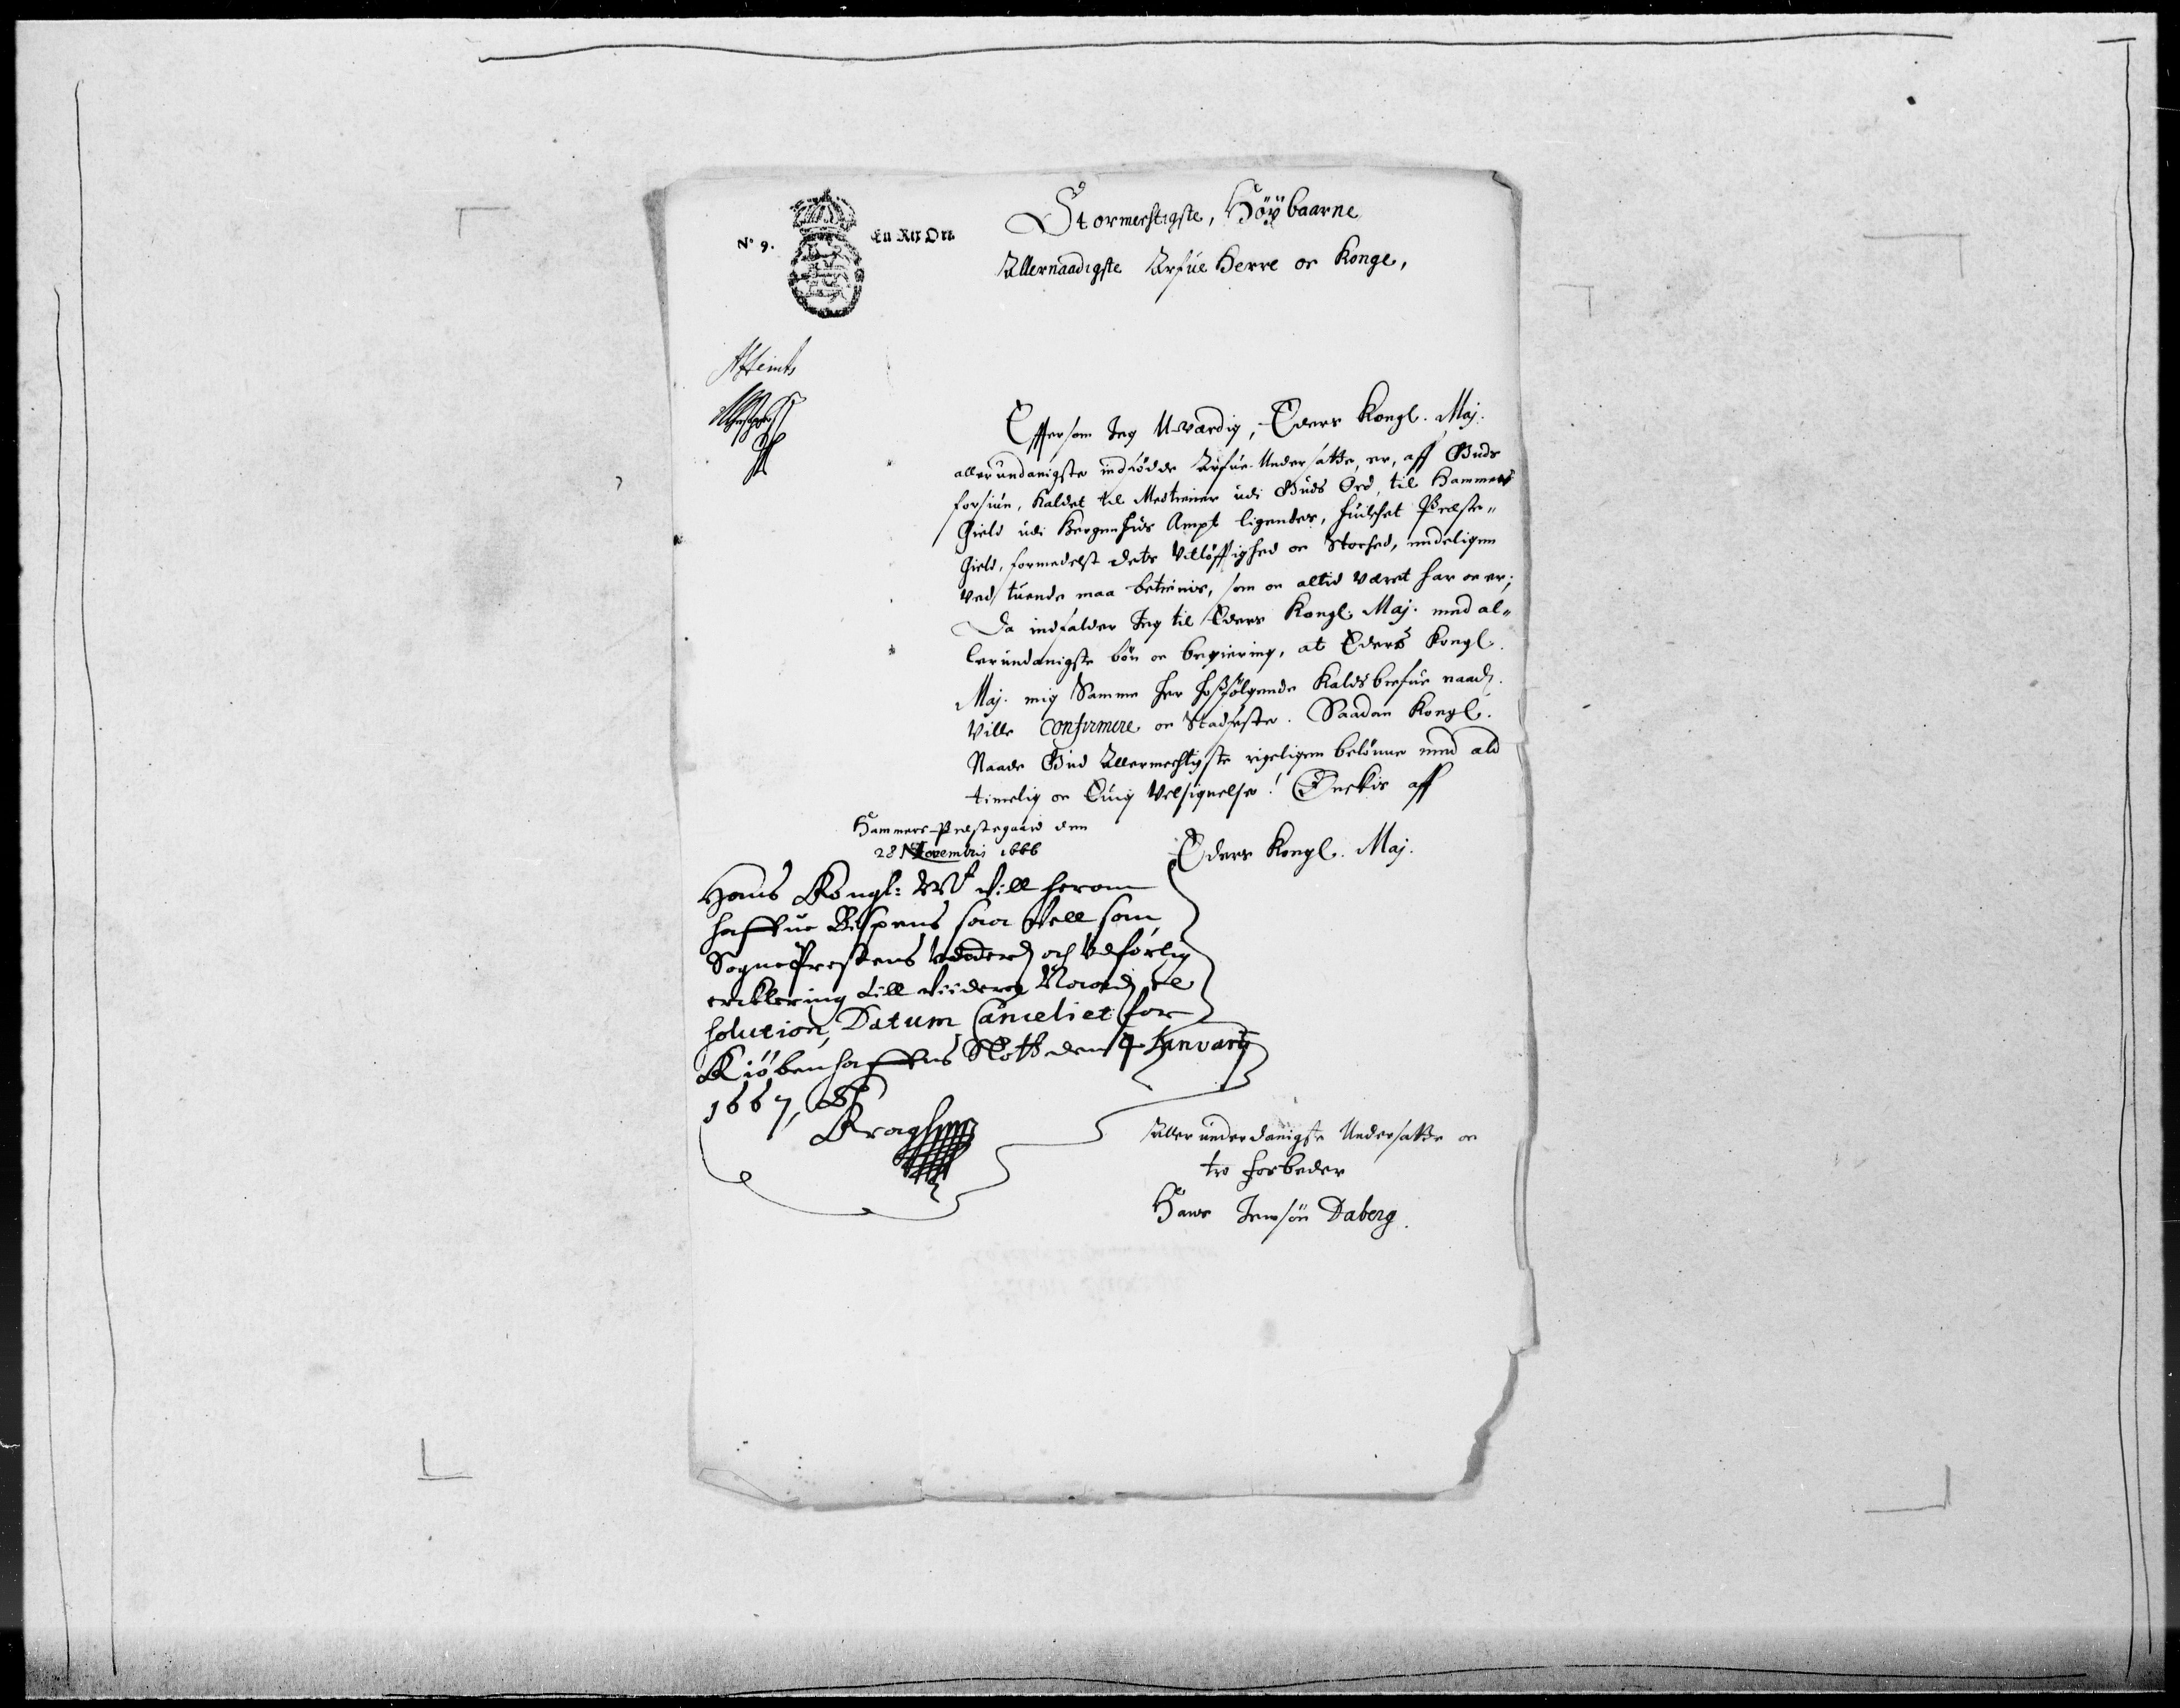 N° 9.
En Rix Ort.
Stormechtigste, Höÿbaarne
Allernaadigste Arfue Herre oc Konge,
Effersom Jeg Uværdig, Eders Kongl. Maj.
allerundanigste indfödde Arfue-Undersatte, er, aff Guds
forsiun, kaldet til Medtiener udi Guds Ord, til Hammers
Gield udi Bergenhus Ampt ligendes, huilchet Præste-
Gield, formedelst dets Vitlöfftighed oc Storhed, endeligen
Ved tuende maa betienis, som oc altid Været har oc er;
Da indfalder Jeg til Eders Kongl. Maj. med al-
lerundanigste bön oc begiering, at Eders Kongl.
Maj. mig Samme her hossfölgende Kaldsbrefue naad.
Ville Confirmere oc Stadfeste. Saadan Kongl.
Naade Gud Allermechtigste rigeligen belönne med ald
timelig oc Euig Velsignelse! Önskis aff
Hammers-Præstegaard den
28 Novembris 1666
Eders Kongl. Maj.
Hans Kongl: Mt Vill herom
haffue Bispens saa Vell som
SognePrestens och Udförlig
erklering till Viidere Naad. re
solution, Datum Canceliet for
Kiöbenhaffens Slott den 4 Januarij
1667,
Allerunderdanigste Undersatte oc
tro forbeder
Hans Jensön Daberg.